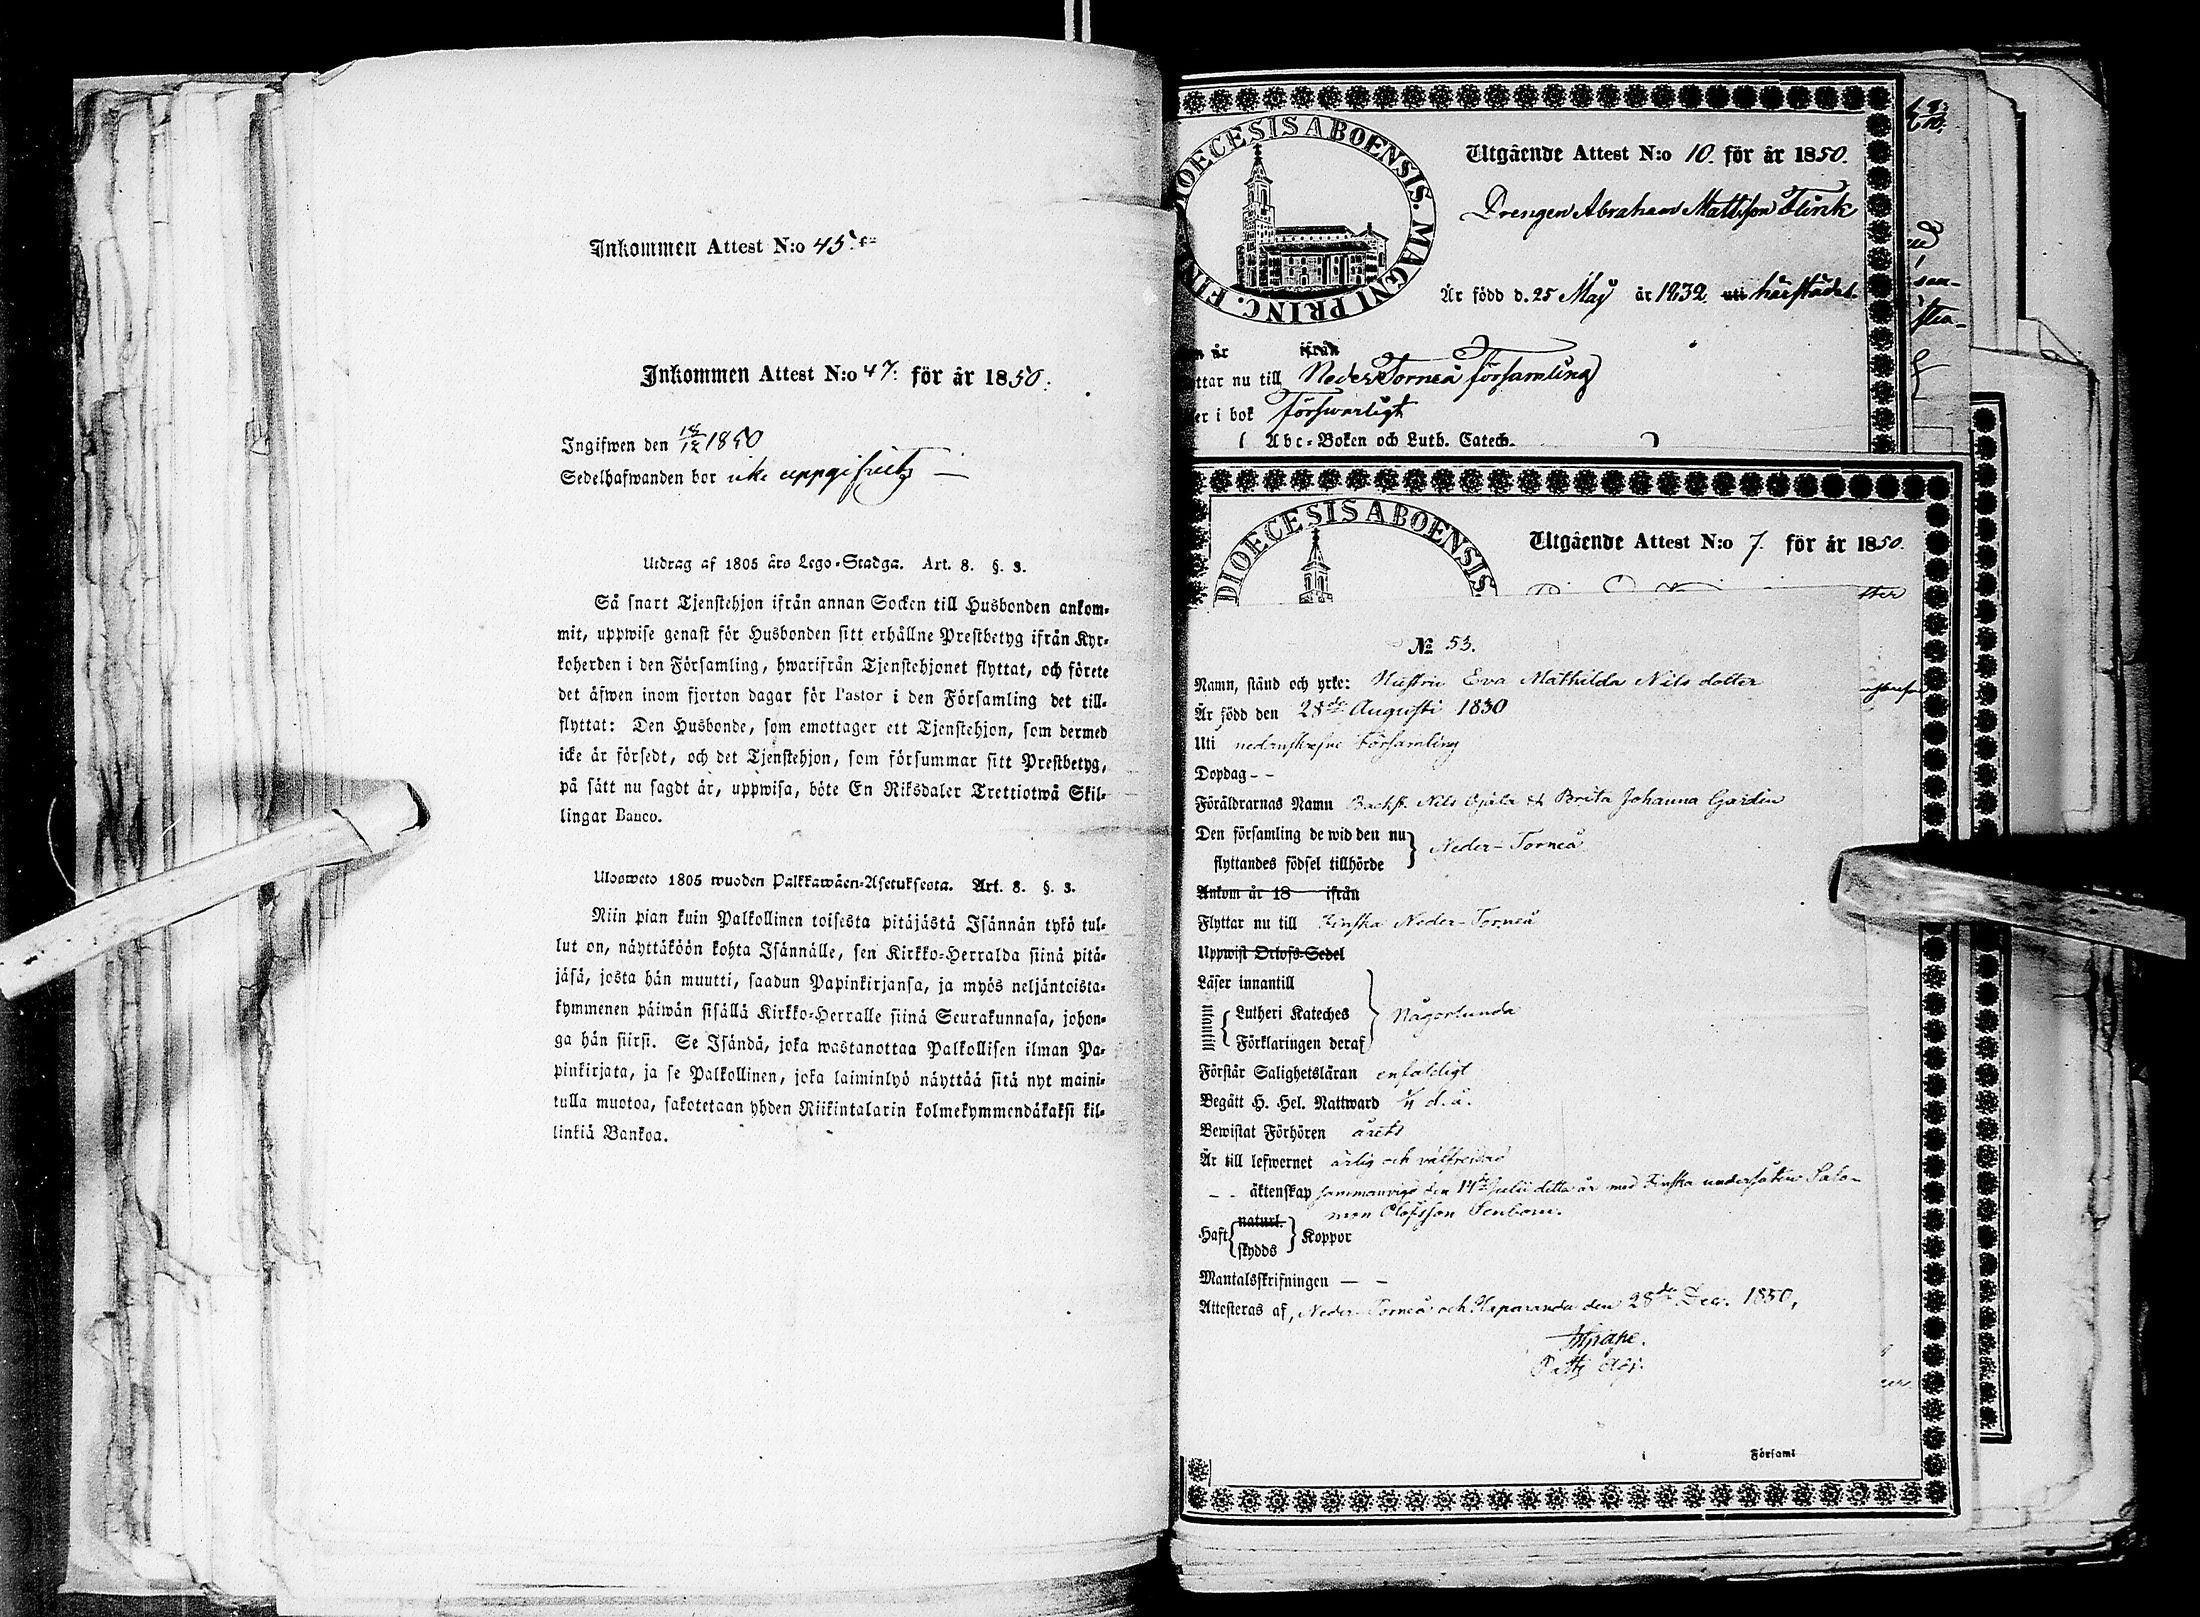 Inkommen Attest N:o 45.
Inkommen Attest N:o 47. för år 1850.
Ingifwen den 18/12 1850
Sedelhafwanden bor icke uppgifwet —
Utdrag af 1805 års Lego-Stadga. Art. 8. §. 3.
Så snart Tjenstehjon ifrån annan Socken till Husbonden ankom-
mit, uppwise genast för Husbonden sitt erhållne Prestbetyg ifrån Kyr-
koherden i den Församling, hwarifrån Tjenstehjonet flyttat, och förete
det äfwen inom fjorton dagar för Pastor i den Församling det till-
flyttat: Den Husbonde, som emottager ett Tjenstehjon, som dermed
icke är försedt, och det Tjenstehjon, som försummar sitt Prestbetyg,
på sätt nu sagdt är, uppwisa, böte En Riksdaler Trettiotwå Skil-
lingar Banco.
Ulosweto 1805 wuoden Palkkawäen-Asetuksesta. Art. 8. §. 3.
Niin pian kuin Palkollinen toisesta pitäjästä Isännän tykö tul-
lut on, näyttäköön kohta Isännälle, sen Kirkko-Herralda siinä pitä-
jäsä, josta hän muutti, saadun Papinkirjansa, ja myös neljäntoista-
kymmenen päiwän sisällä Kirkko-Herralle siinä Seurakunnasa, johon-
ga hän siirsi. Se Isändä, joka wastanottaa Palkollisen ilman Pa-
pinkirjata, ja se Palkollinen, joka laiminlyö näyttää sitä nyt maini-
tulla muotoa, sakotetaan yhden Riikintalarin kolmekymmendäkaksi kil-
linkiä Bankoa.
DIOECESIS ABOENSIS. MAGNI PRINC. FIN
Utgående Attest N:o 10. för år 1850.
Drengen Abraham Mattsson Flink
Är född d. 25 Maj år 1832 uti härstädes.
år ifrån
ttar nu till Neder Torneå församling
er i bok försvarligt
Abc-Boken och Luth. Catech.
DIOECESIS ABOENSIS.
Utgående Attest N:o 7. för år 1850.
N:o 53.
Namn, stånd och yrke: Hustru Eva Mathilda Nils dotter
Är född den 28de Augusti 1830
Uti nedanskrefne Församling
Dopdag - -
Föräldrarnas Namn Backst. Nils Ojala & Brita Johanna Gardin
Den församling de wid den nu
flyttandes födsel tillhörde } Neder-Torneå
Ankom år 18 ifrån
Flyttar nu till Finska Neder-Torneå
Uppwist Orlofs-Sedel
Läser innantill
Lutheri Kateches
Någorlunda
Förklaringen deraf
Förstår Salighetsläran enfaldigt
Begått H. Hel. Nattward d. å.
Bewistat Förhören årets
Är till lefwernet ärlig och välfrejdad
- - äktenskap sammanvigd den 14de Julii detta år med Finska undersåten Salo-
mon Olofsson Stenbom.
Haft { naturl. skydds } Koppor
Mantalsskrifningen — -
Attesteras af, Neder-Torneå och Haparanda den 28de Dec. 1850,
Församl